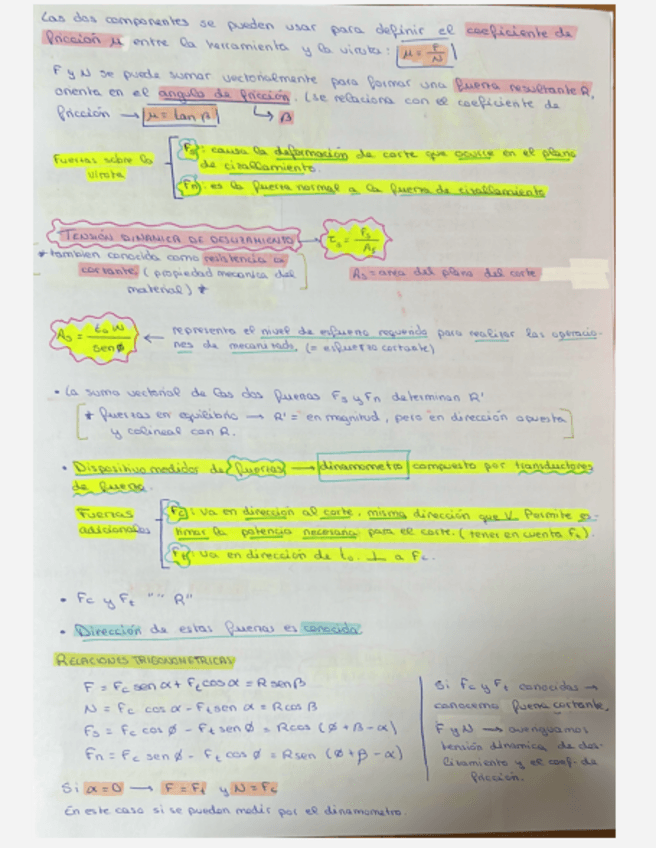 Las dos componentes se pueden usar para definir el coeficiente de
fricción μ entre la herramienta y la viruta: μ = F/N
F y N se puede sumar vectorialmente para formar una fuerza resultante R,
orienta en el angulo de fricción. (se relaciona con el coeficiente de
fricción → μ = tan β ↳ β
Fuerzas sobre la
viruta
Fs: causa la deformación de corte que ocurre en el plano
de cizallamiento.
Fn: es la fuerza normal a la fuerza de cizallamiento
TENSIÓN DINAMICA DE DESLIZAMIENTO → τs = Fs/As
* tambien conocida como resistencia al
cortante (propiedad mecanica del
material) *
As = area del plano del corte
As = to w / sen ø
← representa el nivel de esfuerzo requerido para realizar las operacio-
nes de mecanizado. (= esfuerzo cortante)
• La suma vectorial de las dos fuerzas Fs y Fn determinan R'
* fuerzas en equilibrio → R' = en magnitud, pero en dirección opuesta
y colineal con R.
• Dispositivo medidor de fuerzas → dinamometro compuesto por transductores
de fuerza.
Fuerzas
adicionales
Fc: va en dirección al corte, misma dirección que V. Permite es-
timar la potencia necesaria para el corte. (tener en cuenta Ft).
Ft: va en dirección de to. ⊥ a Fc.
• Fc y Ft "" R"
• Dirección de estas fuerzas es conocida
RELACIONES TRIGONOMETRICAS
F = Fc sen α + Ft cos α = R sen β
N = Fc cos α - Ft sen α = R cos β
Fs = Fc cos ø - Ft sen ø = R cos (ø + β - α)
Fn = Fc sen ø - Ft cos ø = R sen (ø + β - α)
Si Fc y Ft conocidas →
conocemo fuerza cortante,
F y N → averiguamos
tensión dinamica de des-
lizamiento y el coef. de
fricción.
Si α = 0 → F = Ft y N = Fc
En este caso si se pueden medir por el dinamometro.